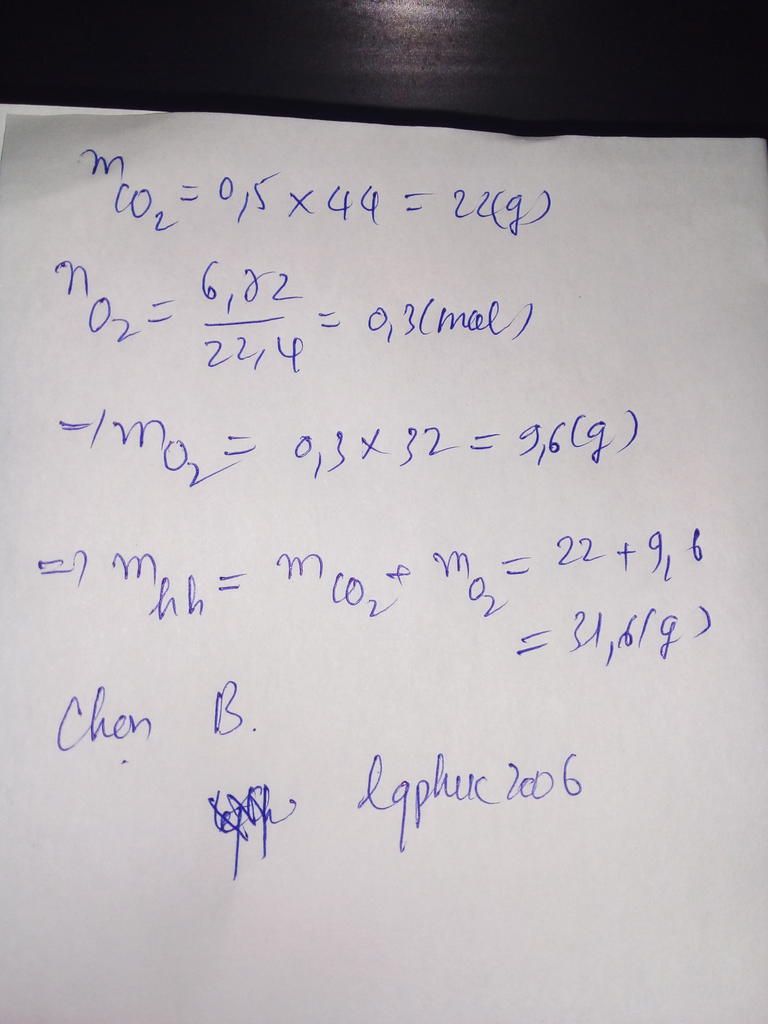 m CO2 = 0,5 × 44 = 22(g)
n O2 = 6,72 / 22,4 = 0,3(mol)
=> mO2 = 0,3 × 32 = 9,6(g)
=> mhh = mCO2 + mO2 = 22 + 9,6
= 31,6(g)
Chọn B.
lqphuc2006